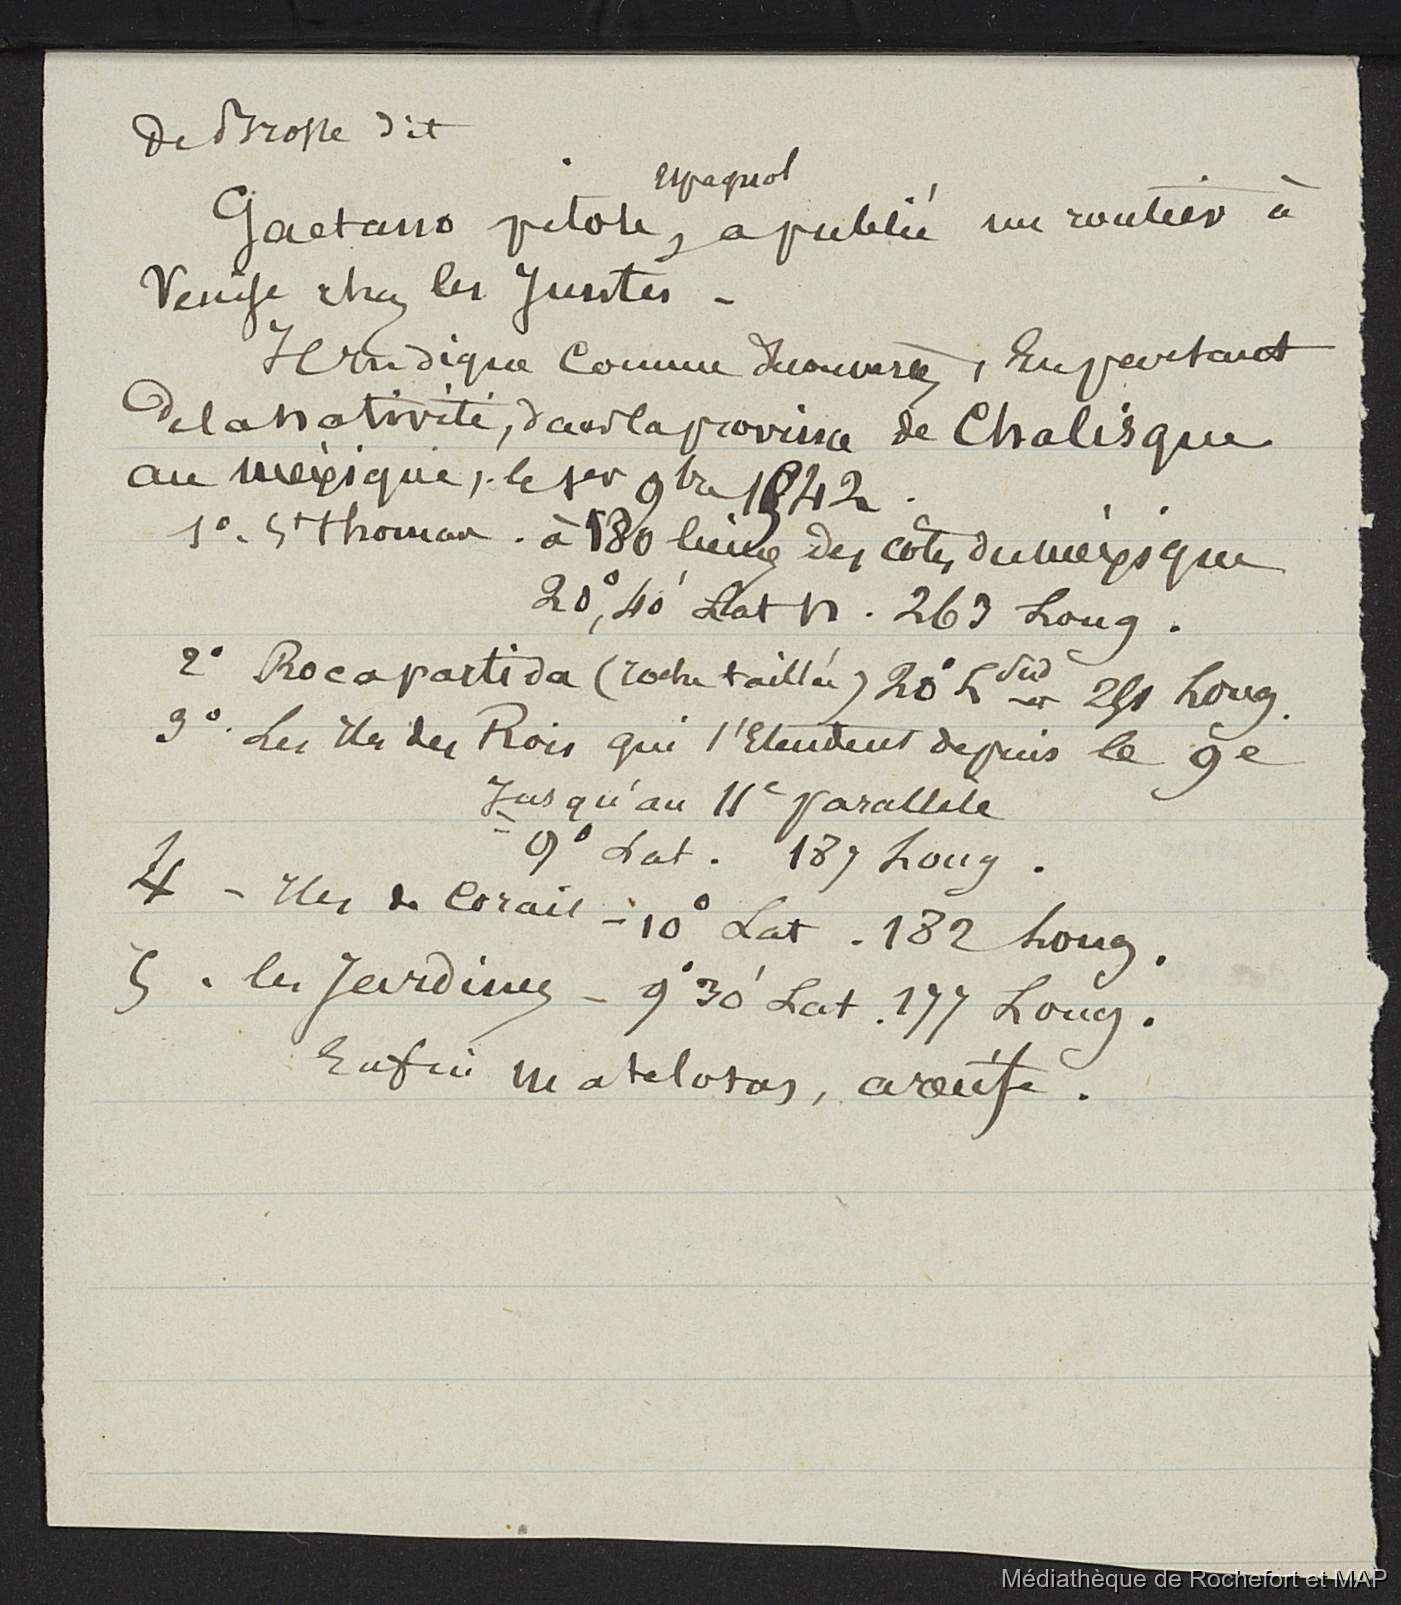 De Brosse dit
espagnol
Gaetano pilote, a publié un routier à
Venise chez les Juntes -
Il indique comme découvertes, En partant
De la nativité, dans la province de Chalisque
au mexique, le 1er 9bre 1542.
1°. St Thomas. à 180 lieues des côtes du mexique
20°, 40' Lat N. 263 Long.
2° Rocapartida (roche taillée) 20° L 251 Long.
3°. Les Iles des Rois qui s'Etendent depuis le 9e
Jusqu'au 11e parallèle
9° Lat. 187 Long.
4 - Iles de Corail - 10° Lat. 182 Long.
5. les Jardines - 9°30' Lat. 177 Long.
Enfin matelotas, arcusse.
Médiathèque de Rochefort et MAP